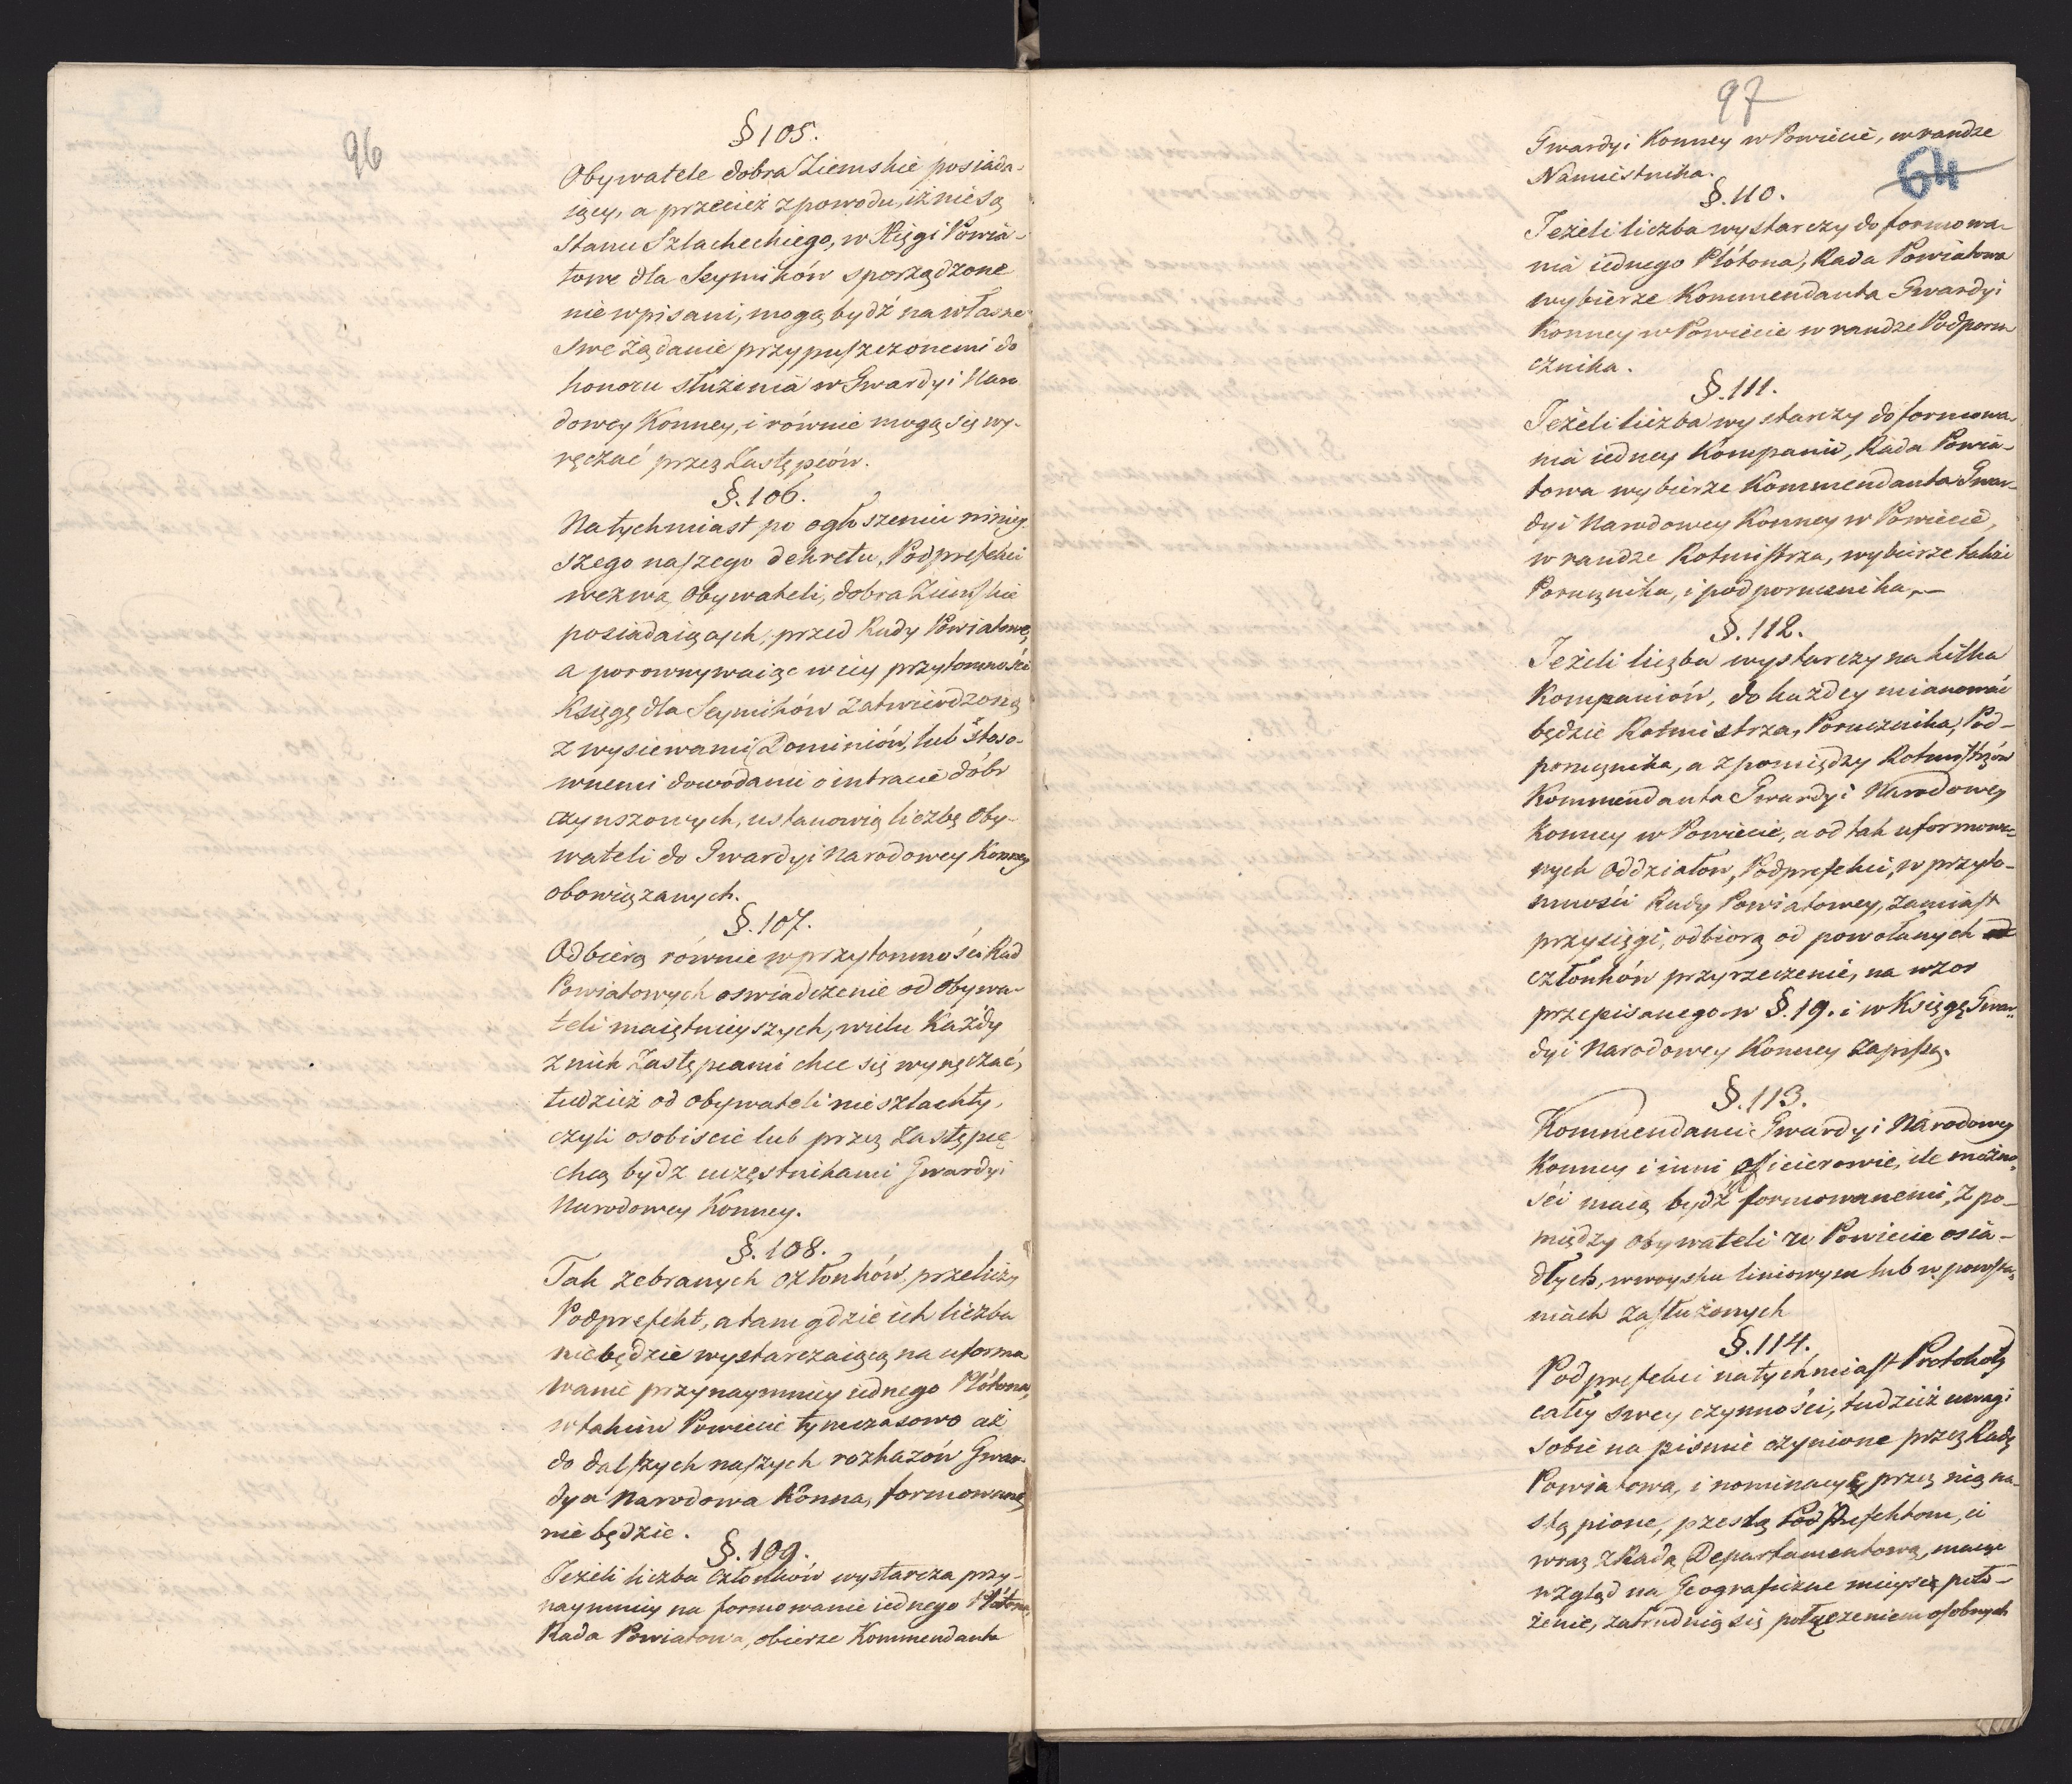 96
§ 105.
Obywatele dobra Ziemskie posiada-
iący, a przecież z powodu, iż nie są
Stanu Szlacheckiego, w Xięgi Powia-
towe dla Seymików sporządzone
nie wpisani, mogą bydź na własne
swe żądanie przypuszczonemi do
honoru służenia w Gwardyi Naro
dowey Konney, i równie mogą się wy-
ręczać przez Zastępców.
§. 106.
Natychmiast po ogłoszeniu niniey-
szego naszego dekretu, Podprefekci
wezwą Obywateli, dobra Ziemskie
posiadaiących, przed Rady Powiatowe,
a porownywaiąc w iey przytomności
Księgę dla Seymików zatwierdzoną
z wysiewami Dominiów, lub stoso-
wnemi dowodami o intracie dóbr
czynszowych, ustanowią liczbę Oby-
wateli do Gwardyi Narodowey Konney
obowiązanych.
§. 107.
Odbiorą równie w przytomności Rad
Powiatowych oswiadczenie od Obywa-
teli maiętnieyszych, wielu Każdy
z nich Zastępcami chce się wyręczać,
tudzież od obywateli nieszlachty,
czyli osobiscie lub przez Zastępcę
chcą bydz uczęstnikami Gwardyi
Narodowey Konney.
§. 108.
Tak zebranych członków, przeliczy
Podprefekt, a tam gdzie ich liczba
nie będzie wystarczaiącą na uformo
wanie przynaymniey iednego Plótona,
w takim Powiecie tymczasowo aż
do dalszych naszych rozkazów Gwar-
dya Narodowa Konna, formowaną
nie będzie.
§. 109.
Jeżeli liczba Członków wystarcza przy-
naymniey na formowanie iednego Plótona,
Rada Powiatowa, obierze Kommendanta
97
64
Gwardyi Konney w Powiecie, w randze
Namiestnika.
§. 110.
Jeżeli liczba wystarczy do formowa-
nia iednego Plótona, Rada Powiatowa
wybierze Kommendanta Gwardyi
Konney w Powiecie w randze Podporu
cznika.
§. 111.
Jeżeli liczba wystarczy do formowa
nia iedney Kompanii, Rada Powia-
towa wybierze Kommendanta Gwar-
dyi Narodowey Konney w Powiecie,
w randze Rotmistrza, wybierze także
Porucznika, i podporucznika,—
§. 112.
Jeżeli liczba wystarczy na kilka
Kompaniów, do każdey mianować
będzie Rotmistrza, Porucznika, Pod-
porucznika, a z pomiędzy Rotmistrzów
Kommendanta Gwardyi Narodowey
Konney w Powiecie, a od tak uformowa-
nych Oddziałów, Podprefekci, w przyto-
mności Rady Powiatowey, zamiast
przysięgi, odbiorą od powołanych
członków przyrzeczenie, na wzor
przepisanego w §. 19. i w Księgę Gwar-
dyi Narodowey Konney zapiszą.
§. 113.
Kommendanci Gwardyi Narodowey
Konney i inni Officierowie, ile możno-
ści maią bydź formowanemi, z po-
między obywateli w Powiecie osia-
dłych, w woysku liniowym lub w powsta-
niach zasłużonych
§. 114.
Podprefekci natychmiast Protokoły
całey swey czynności, tudzież uwagi
sobie na pismie czynione przez Radę
Powiatową, i nominacye przez nią na-
stąpione, prześlą Prefektom, ci
wraz z Radą Departamentową, maiąc
wzgląd na Geograficzne mieysc poło-
żenie, zatrudnią się połączeniem osobnych